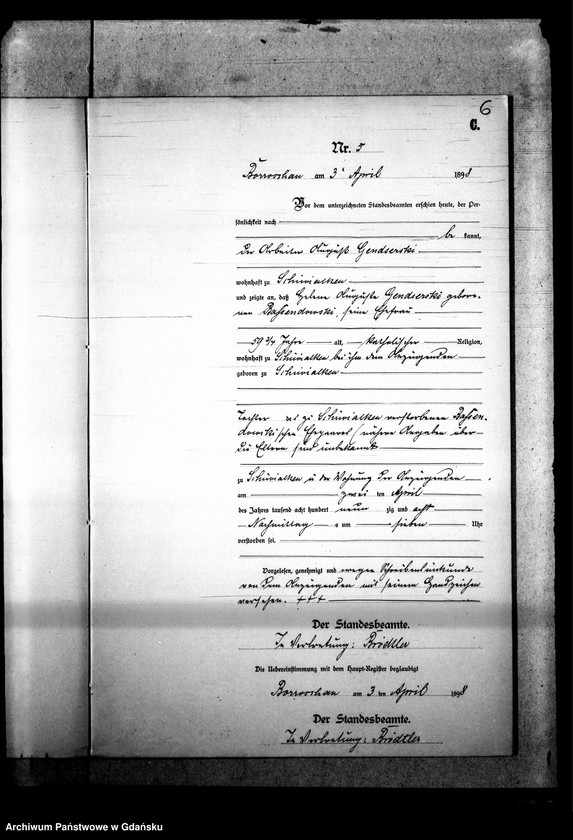 6
C.
Nr. 5
Borroschau am 3 t April 1898
Vor dem unterzeichneten Standesbeamten erschien heute, der Per-
sönlichkeit nach
be kannt,
der Arbeiter August Gendserski
wohnhaft zu Schiwialken
und zeigte an, daß Helene Auguste Gendserski gebore-
nen Bassendowski, seine Ehefrau
59 3/4 Jahre alt, katholischer Religion,
wohnhaft zu Schiwialken bei ihm dem Anzeigenden
geboren zu Schiwialken
Tochter des zu Schiwialken verstorbenen Bassen-
dowskischen Ehepaares (nähere Angaben über
die Eltern sind unbekannt
zu Schiwialken in der Wohnung des Anzeigenden
am zwei ten April
des Jahres tausend acht hundert neun zig und acht
Nachmittag s um sieben Uhr
verstorben sei.
Vorgelesen, genehmigt und wegen Schreibensunkunde
von dem Anzeigenden mit seinem Handzeichen
versehen. +++
Der Standesbeamte.
In Vertretung: Brödtler
Die Uebereinstimmung mit dem Haupt-Register beglaubigt
Borroschau am 3 ten April 1898
Der Standesbeamte.
In Vertretung: Brödtler
Archiwum Państwowe w Gdańsku